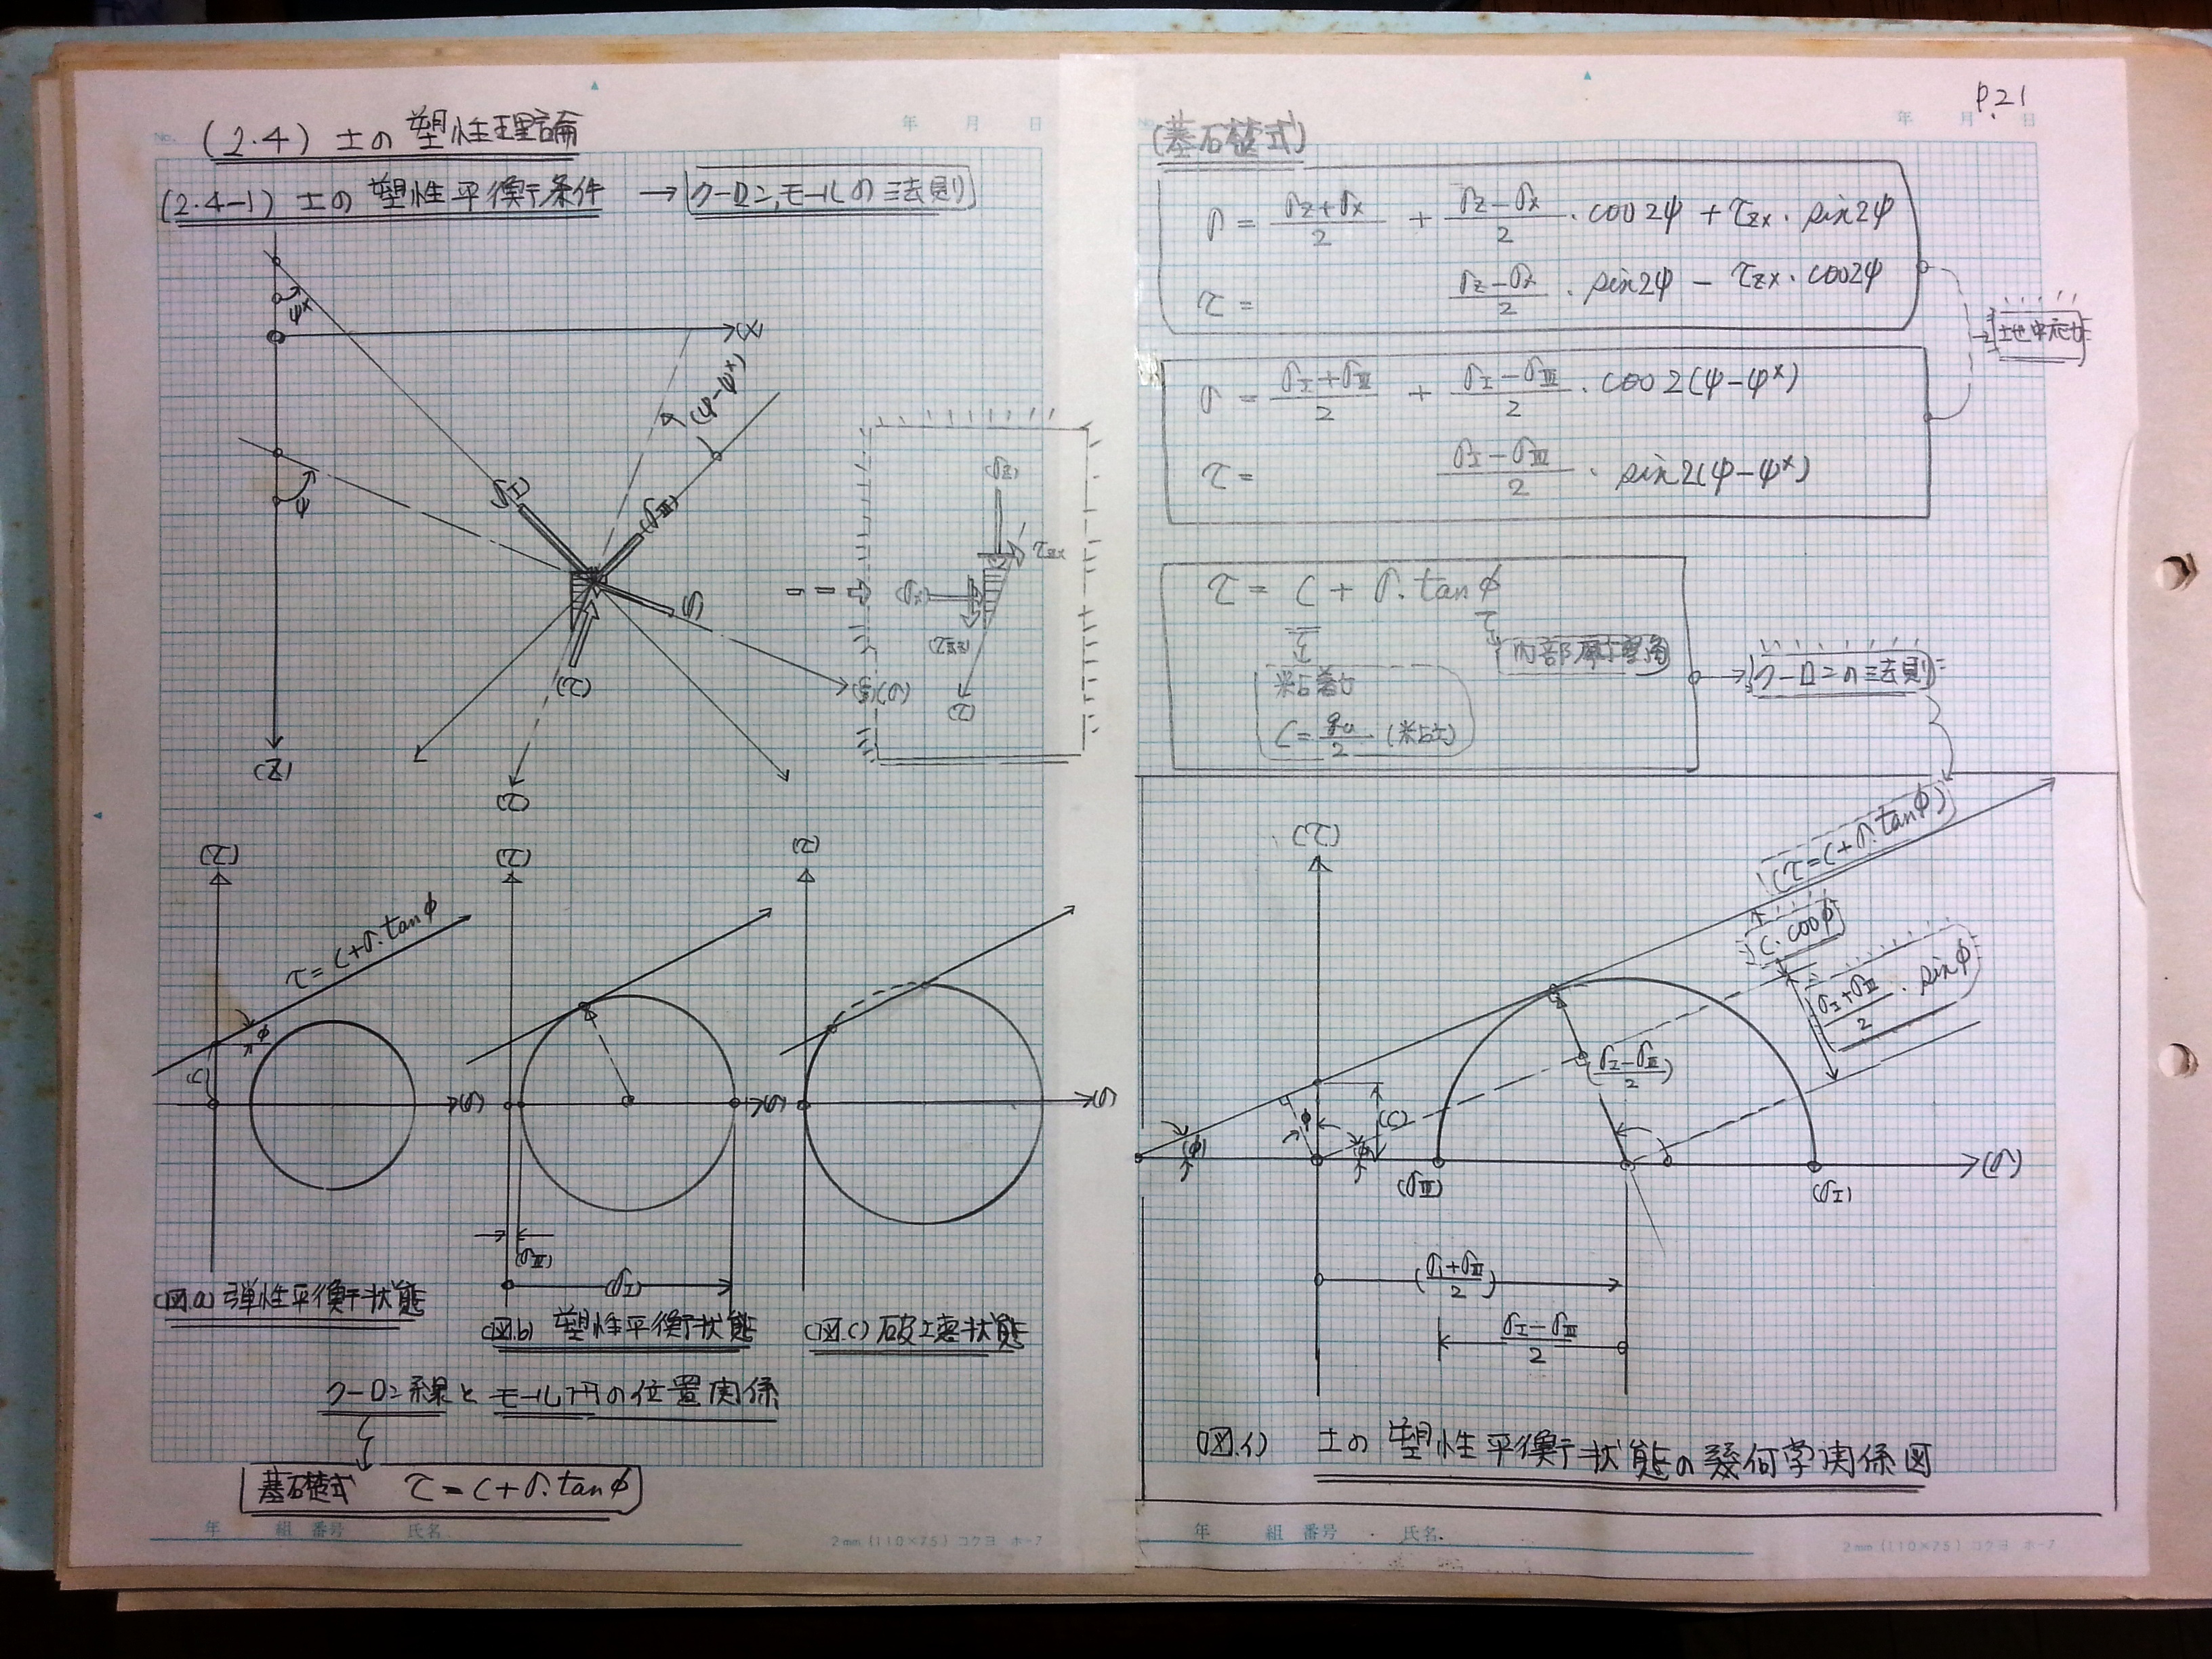 (2.4) 土の塑性理論
(2.4-1) 土の塑性平衡条件 → クーロン,モールの法則
ψ*
(X)
(ψ-ψ*)
ψ
σI
(σⅢ)
(σ)
(τ)
(Z)
(τ)
(σz)
τzx
(σx)
(τ)
(τ)
τ=C+σ.tanφ
φ
C
(σ)
(τ)
(σⅢ)
(σI)
(σ)
(τ)
(σ)
(図.a) 弾性平衡状態
(図.b) 塑性平衡状態
(図.c) 破壊状態
クーロン線とモール円の位置関係
基礎式 τ=C+σ.tanφ
年 組 番号 氏名
2mm (110×75) コクヨ ホ-7
P.21
No. 年 月 日
(基礎式)
σ = (σz+σx)/2 + (σz-σx)/2 . cos2ψ + τzx . sin2ψ
τ = (σz-σx)/2 . sin2ψ - τzx . cos2ψ
地中応力
σ = (σI+σⅢ)/2 + (σI-σⅢ)/2 . cos2(ψ-ψ*)
τ = (σI-σⅢ)/2 . sin2(ψ-ψ*)
τ = C + σ. tanφ
内部摩擦角
粘着力
C = qu/2 (粘土)
クーロンの法則
(τ)
(τ=C+σ.tanφ)
C.cosφ
(σI+σⅢ)/2 . sinφ
(σI-σⅢ)/2
(φ)
φ
φ
(C)
(σⅢ)
(σI)
(σ)
(σI+σⅢ)/2
(σI-σⅢ)/2
(図.1) 土の塑性平衡状態の幾何学関係図
年 組 番号 氏名
2mm (110×75) コクヨ ホ-7